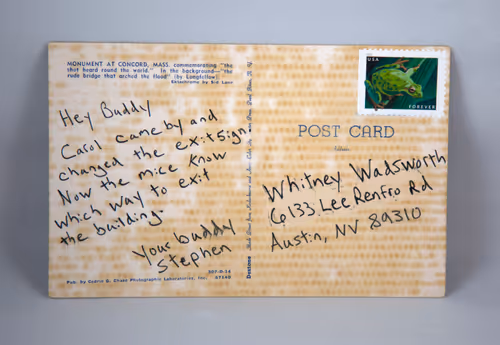 MONUMENT AT CONCORD, MASS. commemorating "the
shot heard round the world." In the background—"the
rude bridge that arched the flood" (by Longfellow)
Ektachrome by Sid Lane
Hey Buddy
Carol came by and
changed the exit sign.
Now the mice know
which way to exit
the building.
Your buddy
Stephen
Pub. by Cedric G. Chase Photographic Laboratories, Inc.
Dextone
USA
FOREVER
POST CARD
Whitney Wadsworth
6133 Lee Renfro Rd
Austin, NV 89310